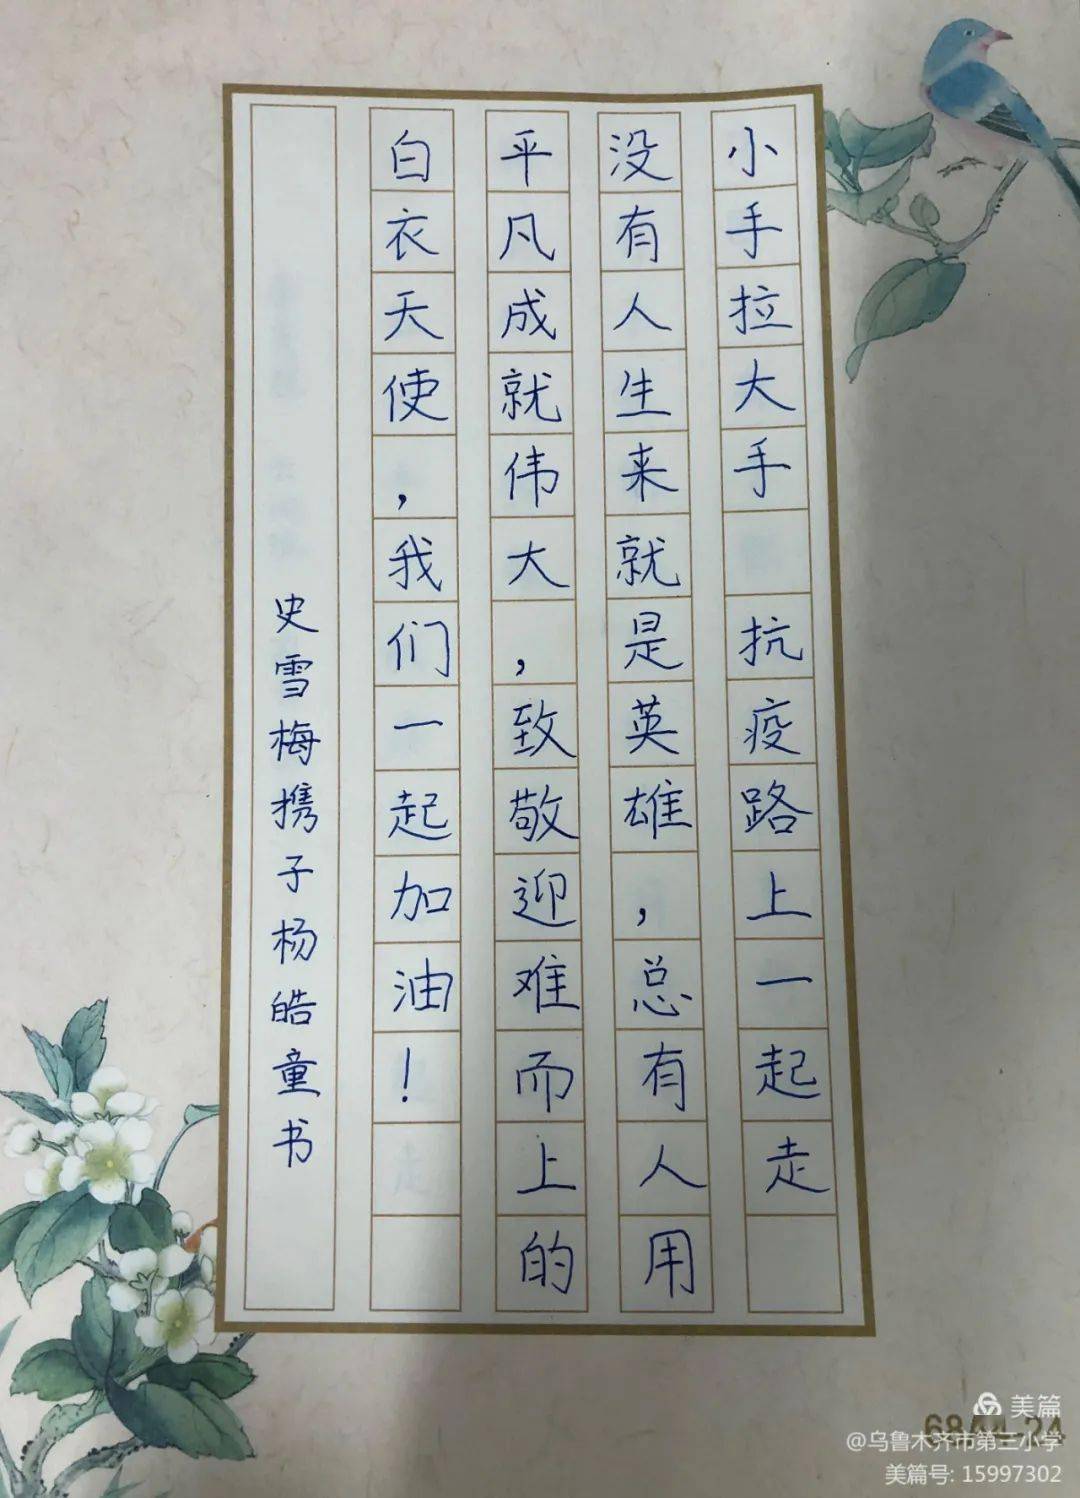 小手拉大手 抗疫路上一起走
没有人生来就是英雄，总有人用
平凡成就伟大，致敬迎难而上的
白衣天使，我们一起加油！
史雪梅携子杨皓童书
美篇
@乌鲁木齐市第三小学
美篇号: 15997302